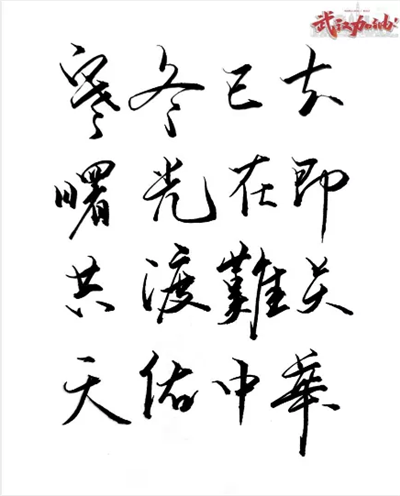 武汉加油
寒冬已去
曙光在即
共渡難关
天佑中華